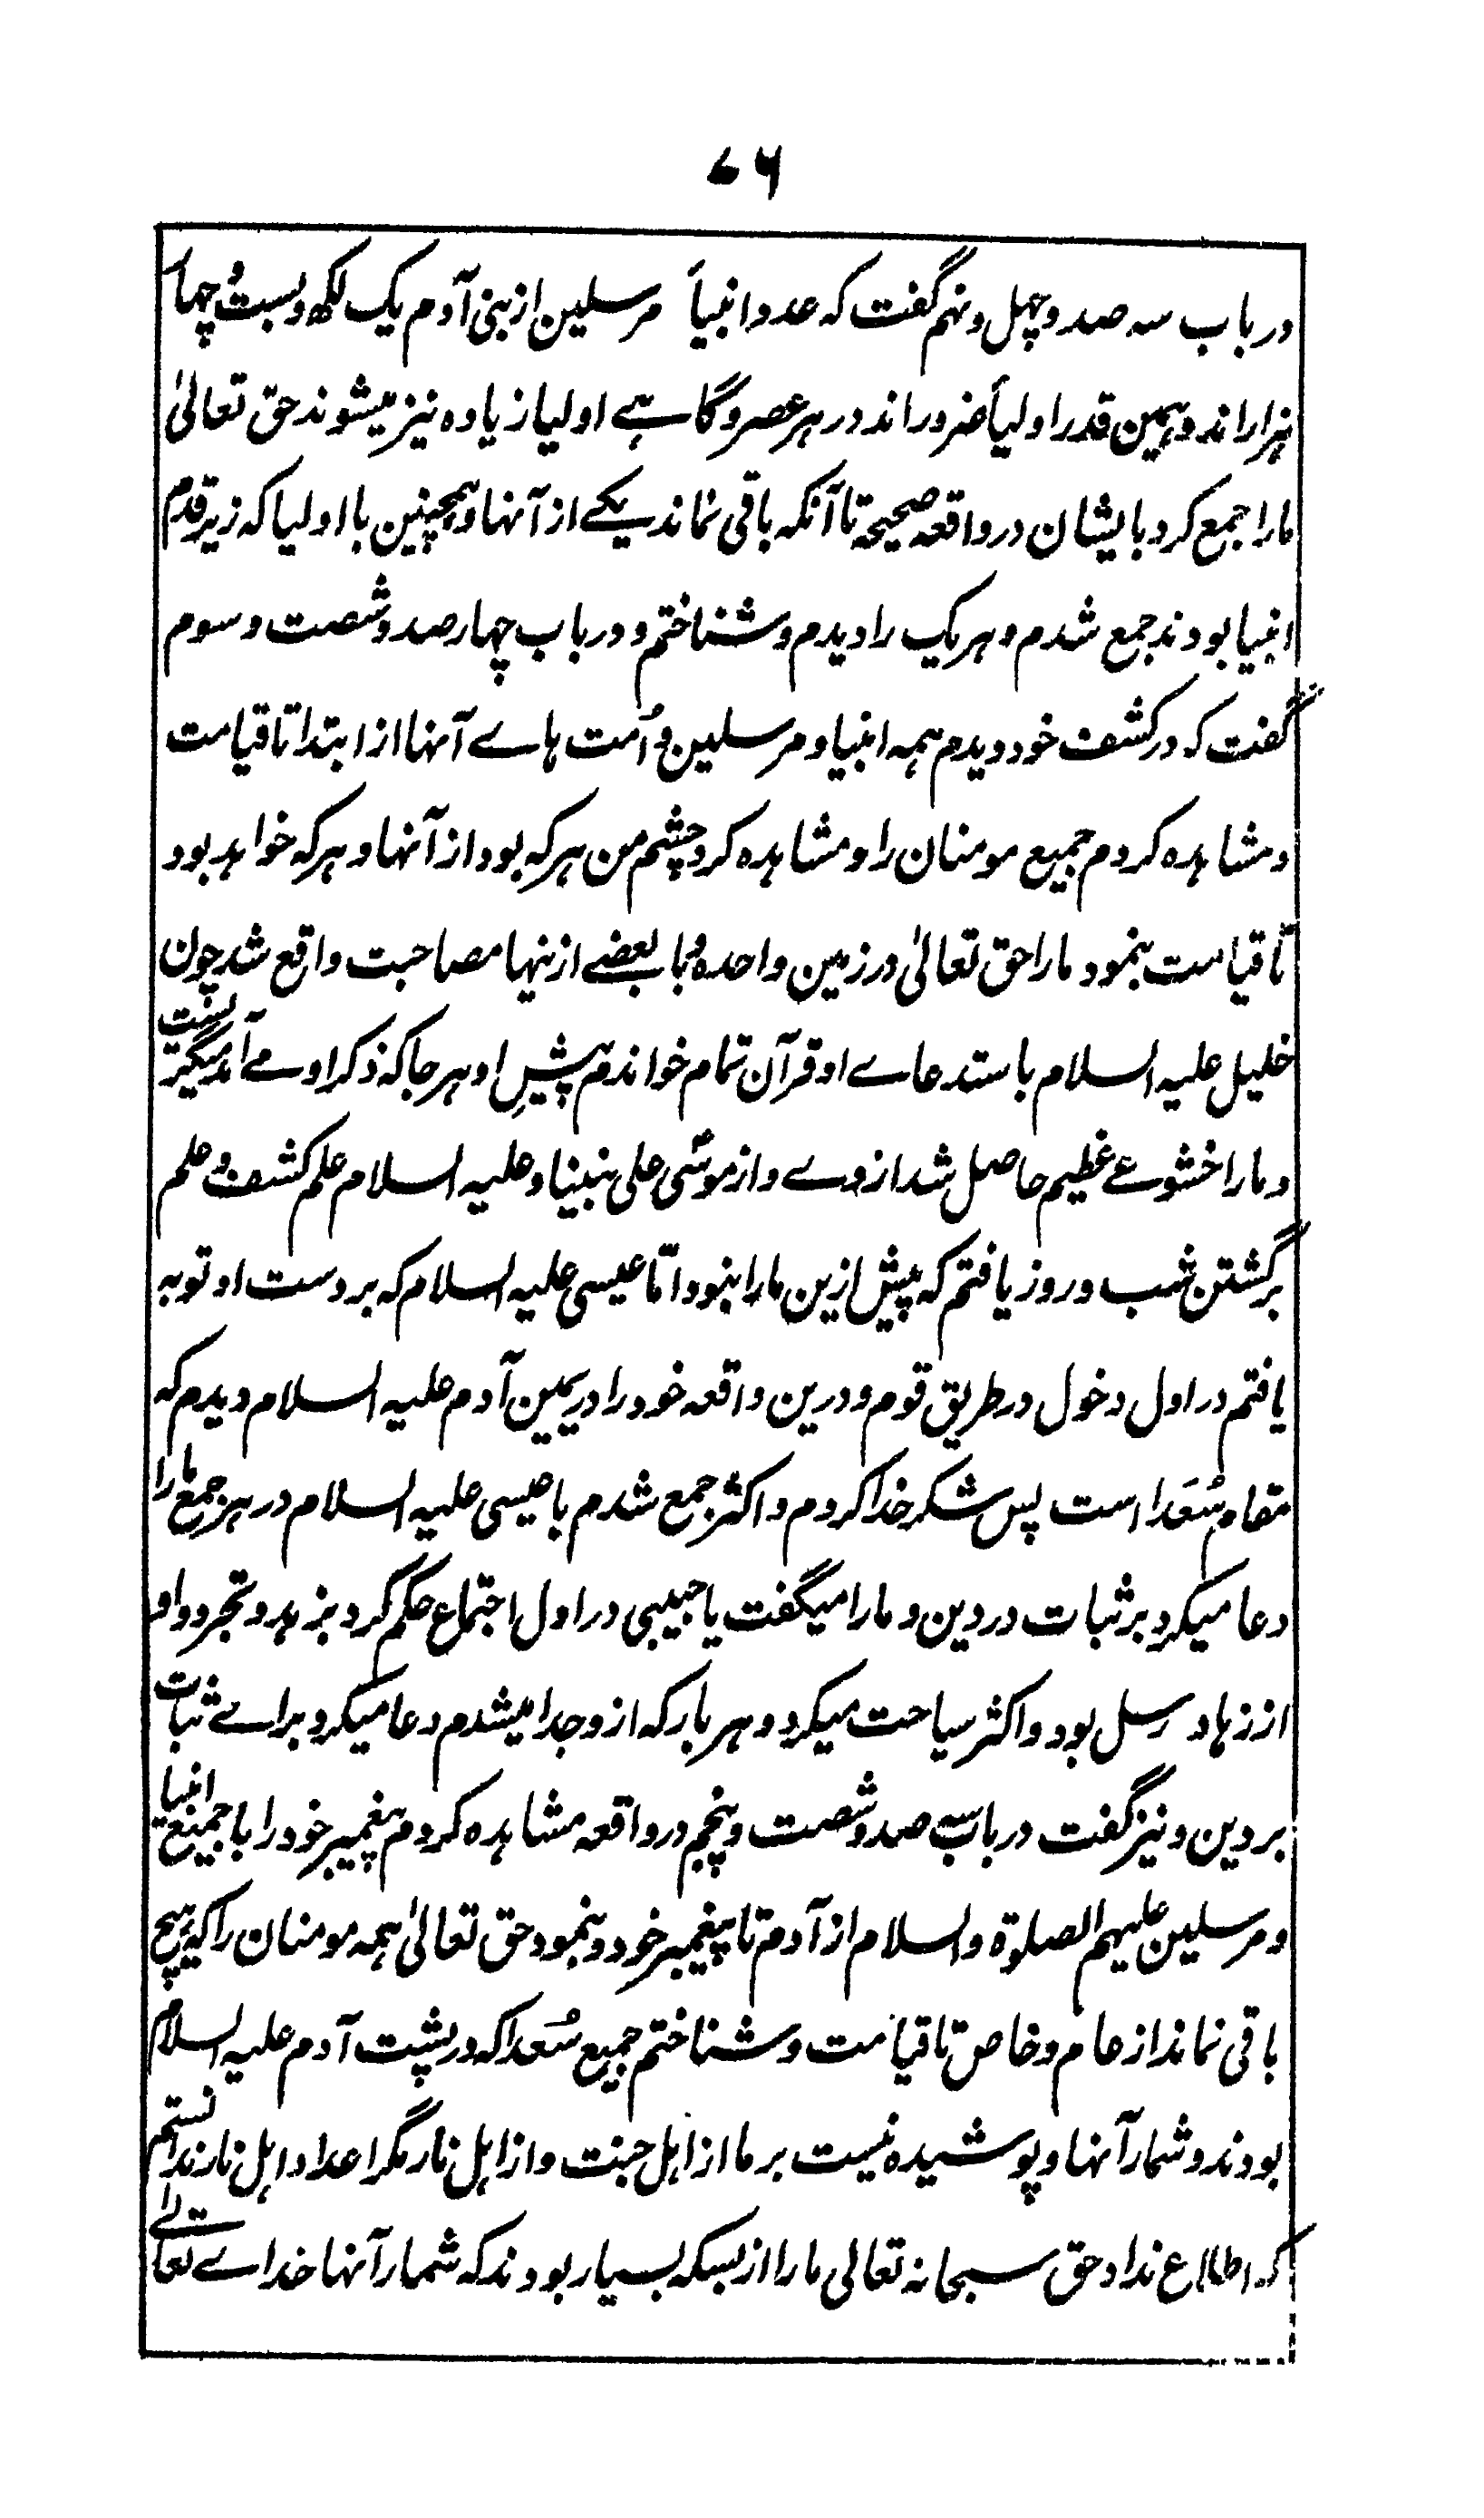 ۷۶
در باب سه صد و چهل و نهم گفت که عدد انبیأ مرسلین از بنی آدم یک لکهه و بست و چهار
هزار اند و همین قدر اولیأ ضرور اند در هر عصر و گاہے اولیا زیاده نیز میشوند حق تعالیٰ
ما را جمع کرد با یشان در واقعه صحیحه تا آنکه باقی نماند یکے از آنها و همچنین با اولیا که زیر قدم
انبیا بودند جمع شدم و هر یک را دیدم و شناختم و در باب چهار صد و شصت و سوم
گفت که در کشف خود دیدم همه انبیا و مرسلین و اُمت هاے آنها از ابتدا تا قیامت
و مشاهده کردم جمیع مومنان را و مشاهده کرد چشم من هر که بود از آنها و هر که خواهد بود
تا قیامت بنمود ما را حق تعالیٰ در زمین واحده و با بعضے ازینها مصاحبت واقع شد چون
خلیل علیه السلام باستدعاے او قرآن تمام خواندم پیشِ او هر جا که ذکر او مے آمد میگریست
و ما را خشوعے عظیم حاصل شد ازوے و از موسٰی علی نبینا و علیه السلام علم کشف و علم
برگشتن شب و روز یافتم که پیش ازین ما را نبود امّا عیسی علیه السلام که بر دست او توبه
یافتم در اول دخول در طریق قوم و درین واقعه خود را در یمین آدم علیه السلام دیدم که
مقام سُعَدا است پس شکر خدا کردم و اکثر جمع شدم با عیسی علیه السلام در هر جمع ما را
دعا میکرد بر ثبات در دین و ما را میگفت یا حبیبی در اول اجتماع حکم کرد بزهد و تجرد و او
از زهاد رسل بود و اکثر سیاحت میکرد و هر بار که ازو جدا میشدم دعا میکرد براے ثبات
بر دین و نیز گفت در باب سه صد و شصت و پنجم در واقعه مشاهده کردم پیغمبر خود را با جمیع انبیا
و مرسلین علیهم الصلوة والسلام از آدم تا پیغمبر خود و بنمود حق تعالیٰ همه مومنان را که هیچ
باقی نماند از عام و خاص تا قیامت و شناختم جمیع سُعَدا که در پشت آدم علیه السلام
بودند و شمار آنها و پوشیده نیست بر ما از اهل جنت و از اهل نار مگر اعداد اهل نار ندانستم
که اطلاع نداد حق سبحانه تعالی ما را از بسکه بسیار بودند که شمار آنها خداے تعالے